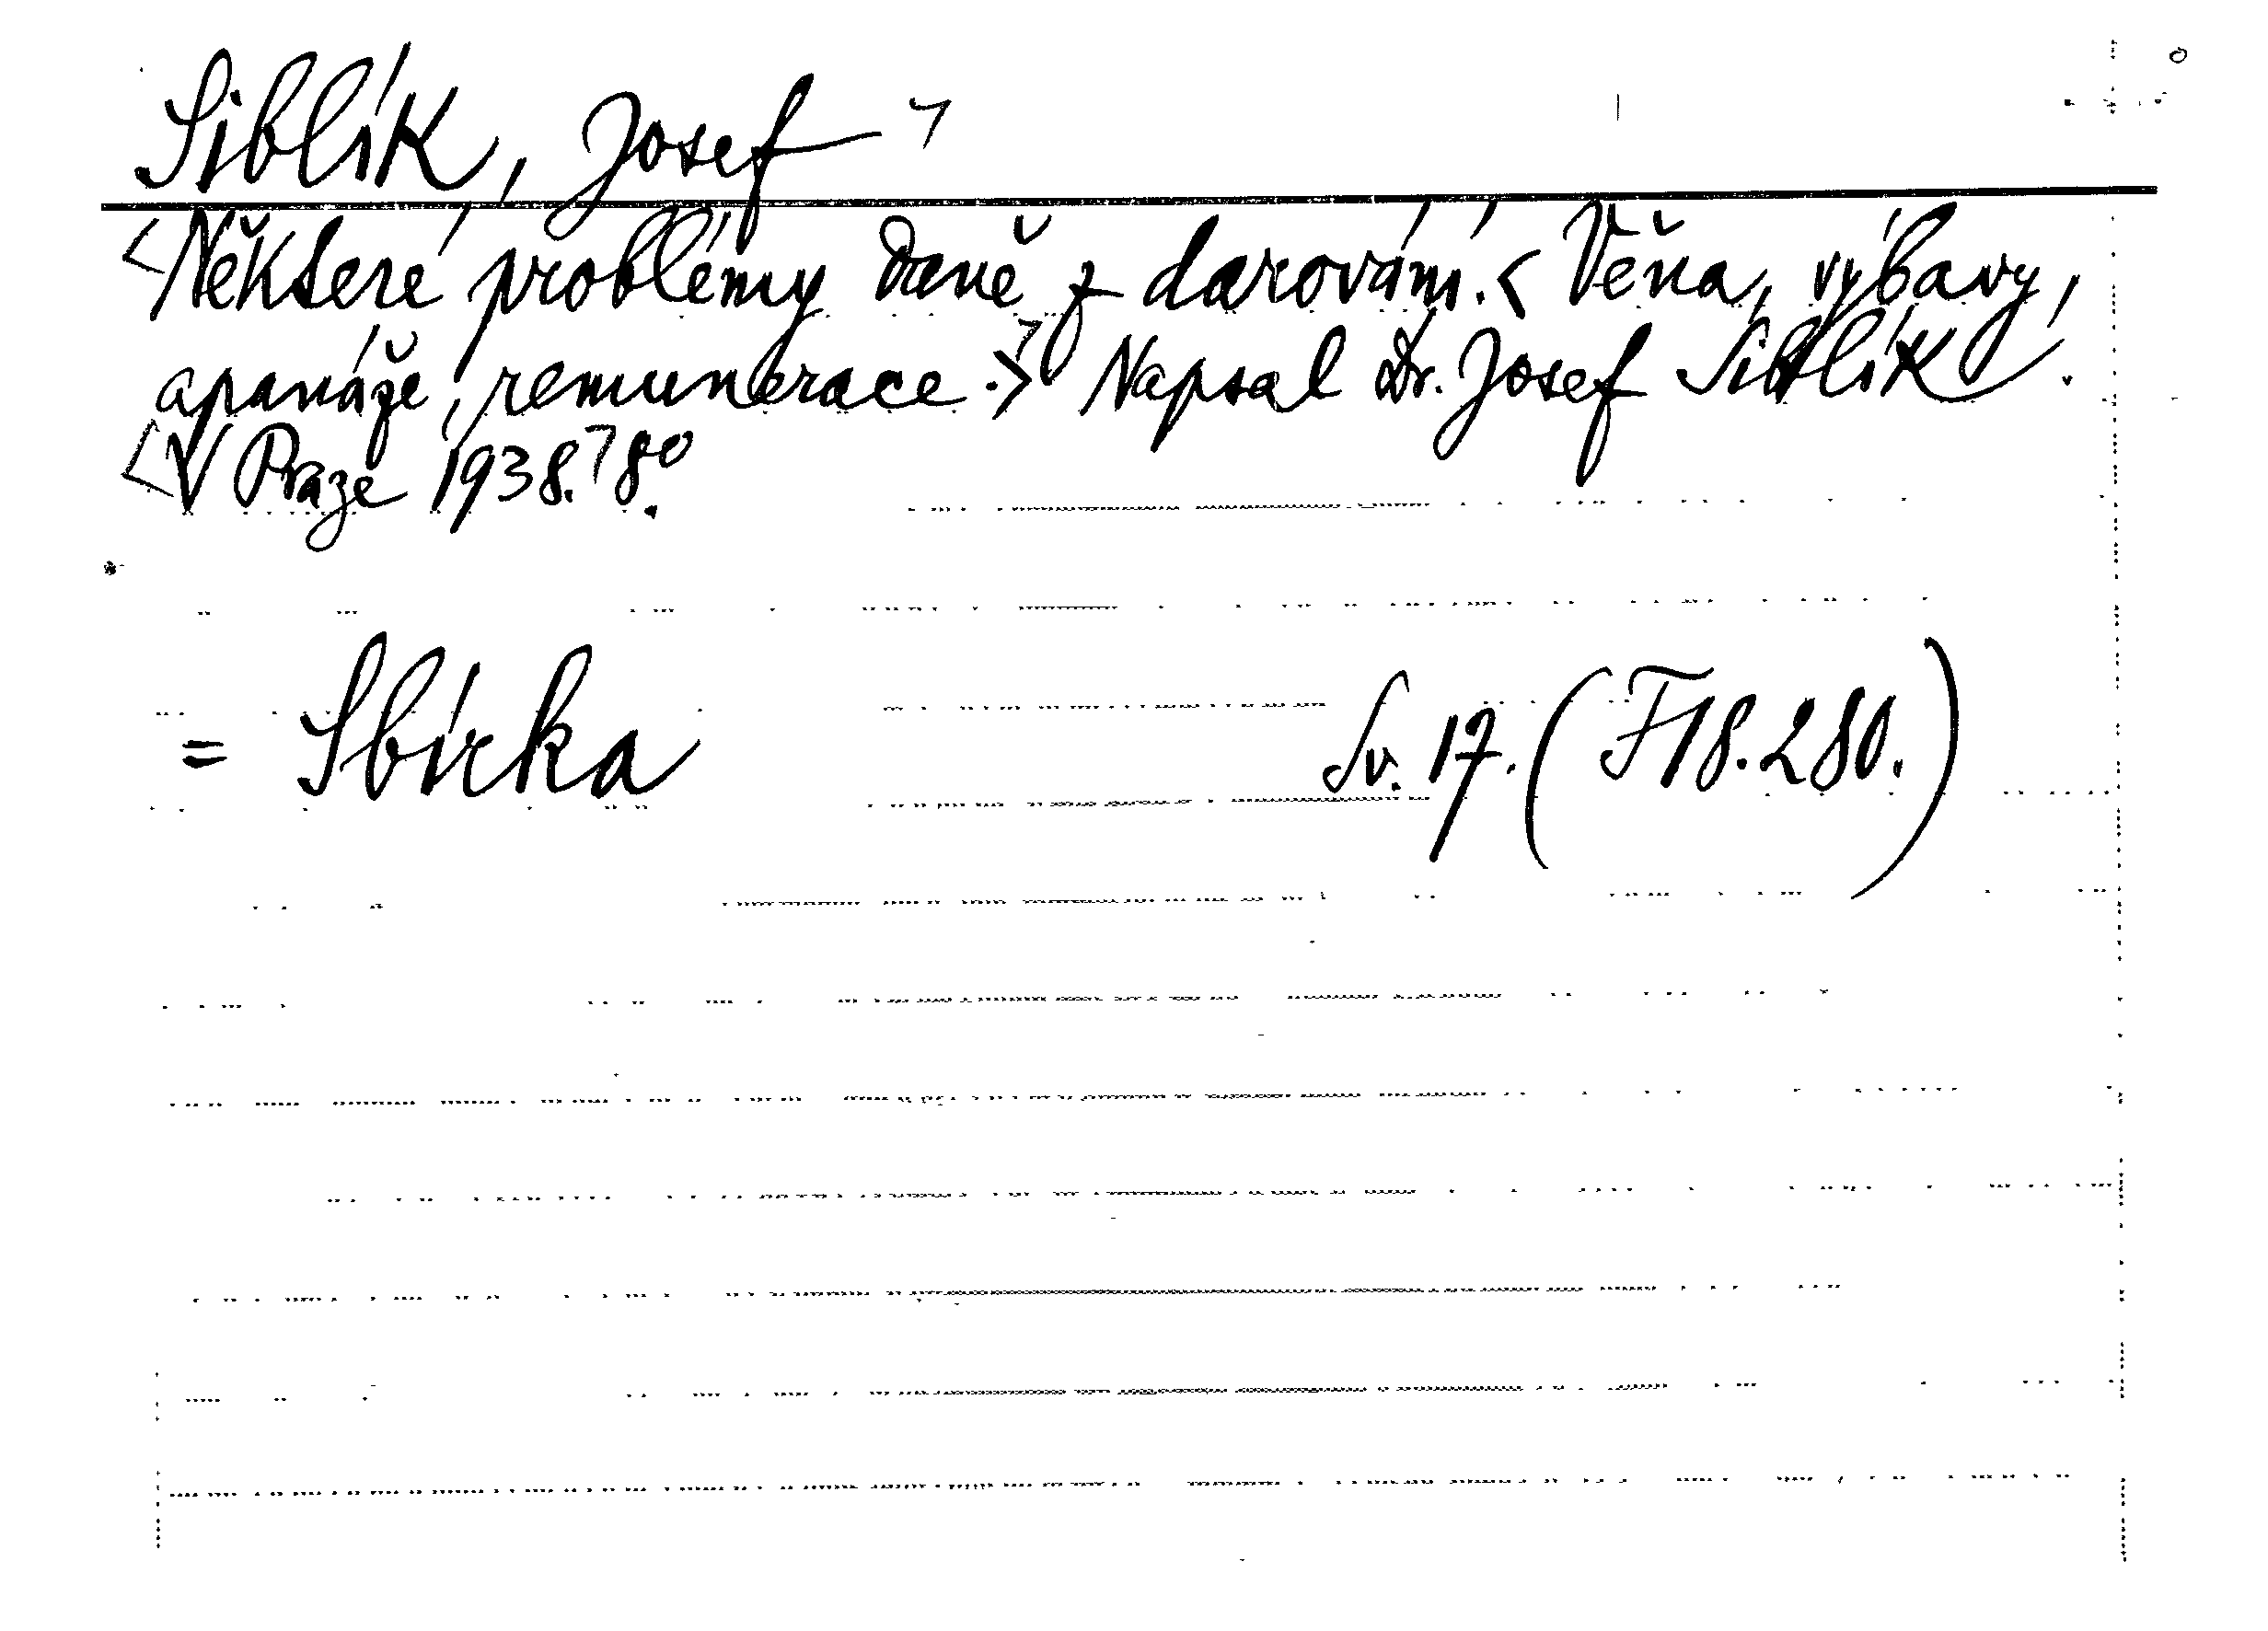 Siblík, Josef
Některé problémy daně z darování. < Věna, výbavy,
apanáže, remunerace. > Napsal Dr. Josef Siblík.
V Praze 1938. 8°.
= Sbírka Sv. 17. (F 18.280.)